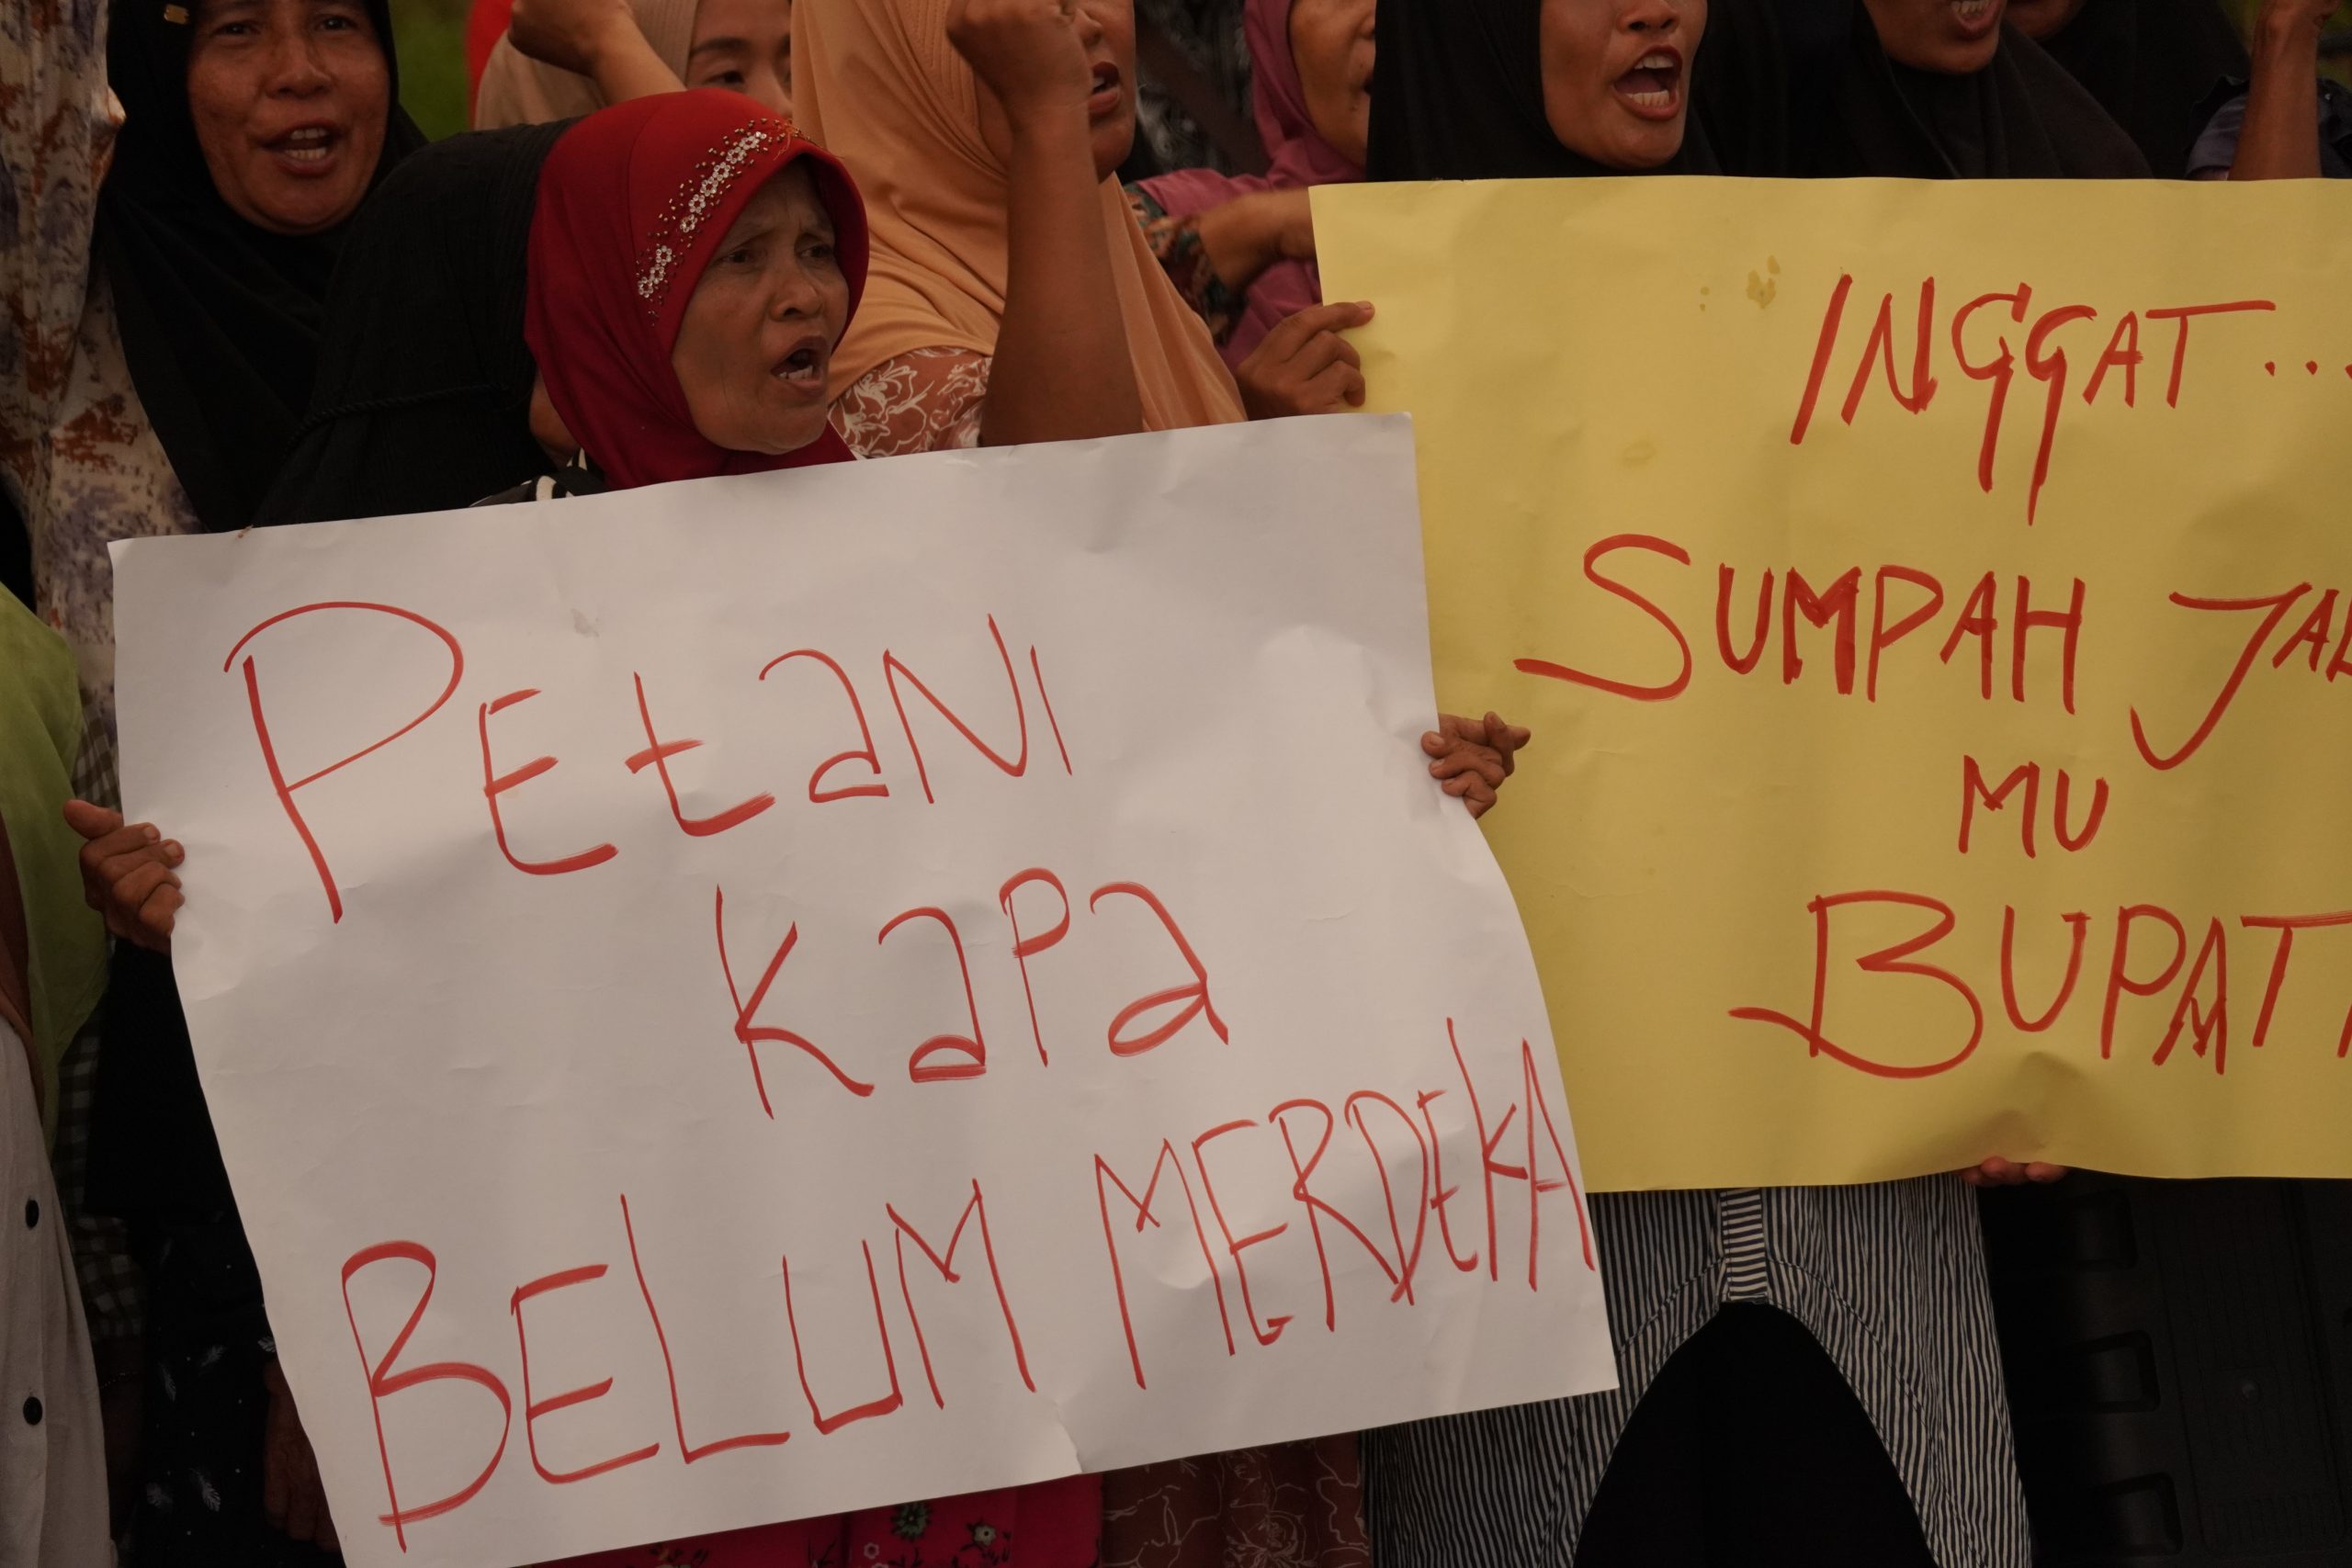 PEtaNI
KaPa
BELUM MERDEKA
INGGAT...
SUMPAH
MU
BUPATI